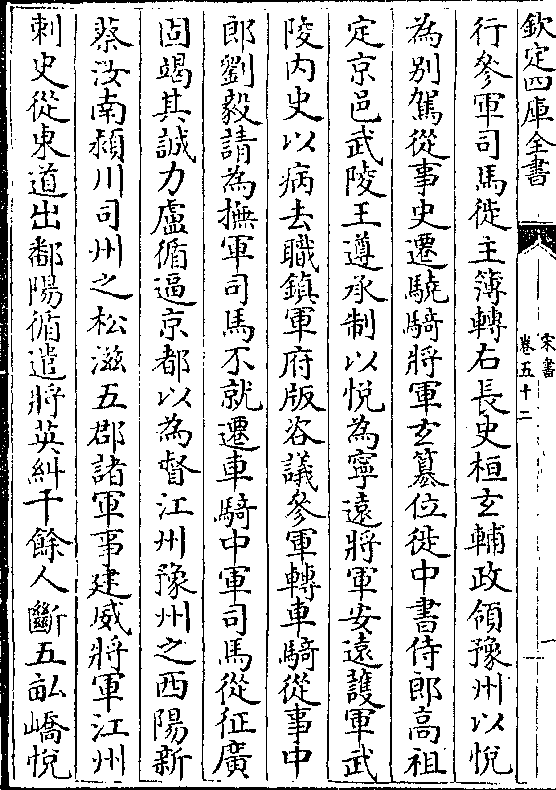 欽定四庫全書
宋書
卷五十二
一
行參軍司馬徙主簿轉右長史桓玄輔政領豫州以悅
為别駕從事史遷驍騎將軍玄簒位徙中書侍郎髙祖
定京邑武陵王遵承制以悅為寧遠將軍安遠護軍武
陵内史以病去職鎮軍府版咨議參軍轉車騎從事中
郎劉毅請為撫軍司馬不就遷車騎中軍司馬從征廣
固竭其誠力盧循逼京都以為督江州豫州之西陽新
蔡汝南潁川司州之松滋五郡諸軍事建威將軍江州
刺史從東道出鄱陽循遣將英糾千餘人斷五畝嶠悅